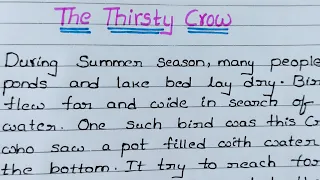 The Thirsty Crow
During Summer season, many people
ponds and lake bed lay dry.
flew far and wide in search of
water. One such bird was this
who saw a pot filled with water
the bottom. It try to reach for